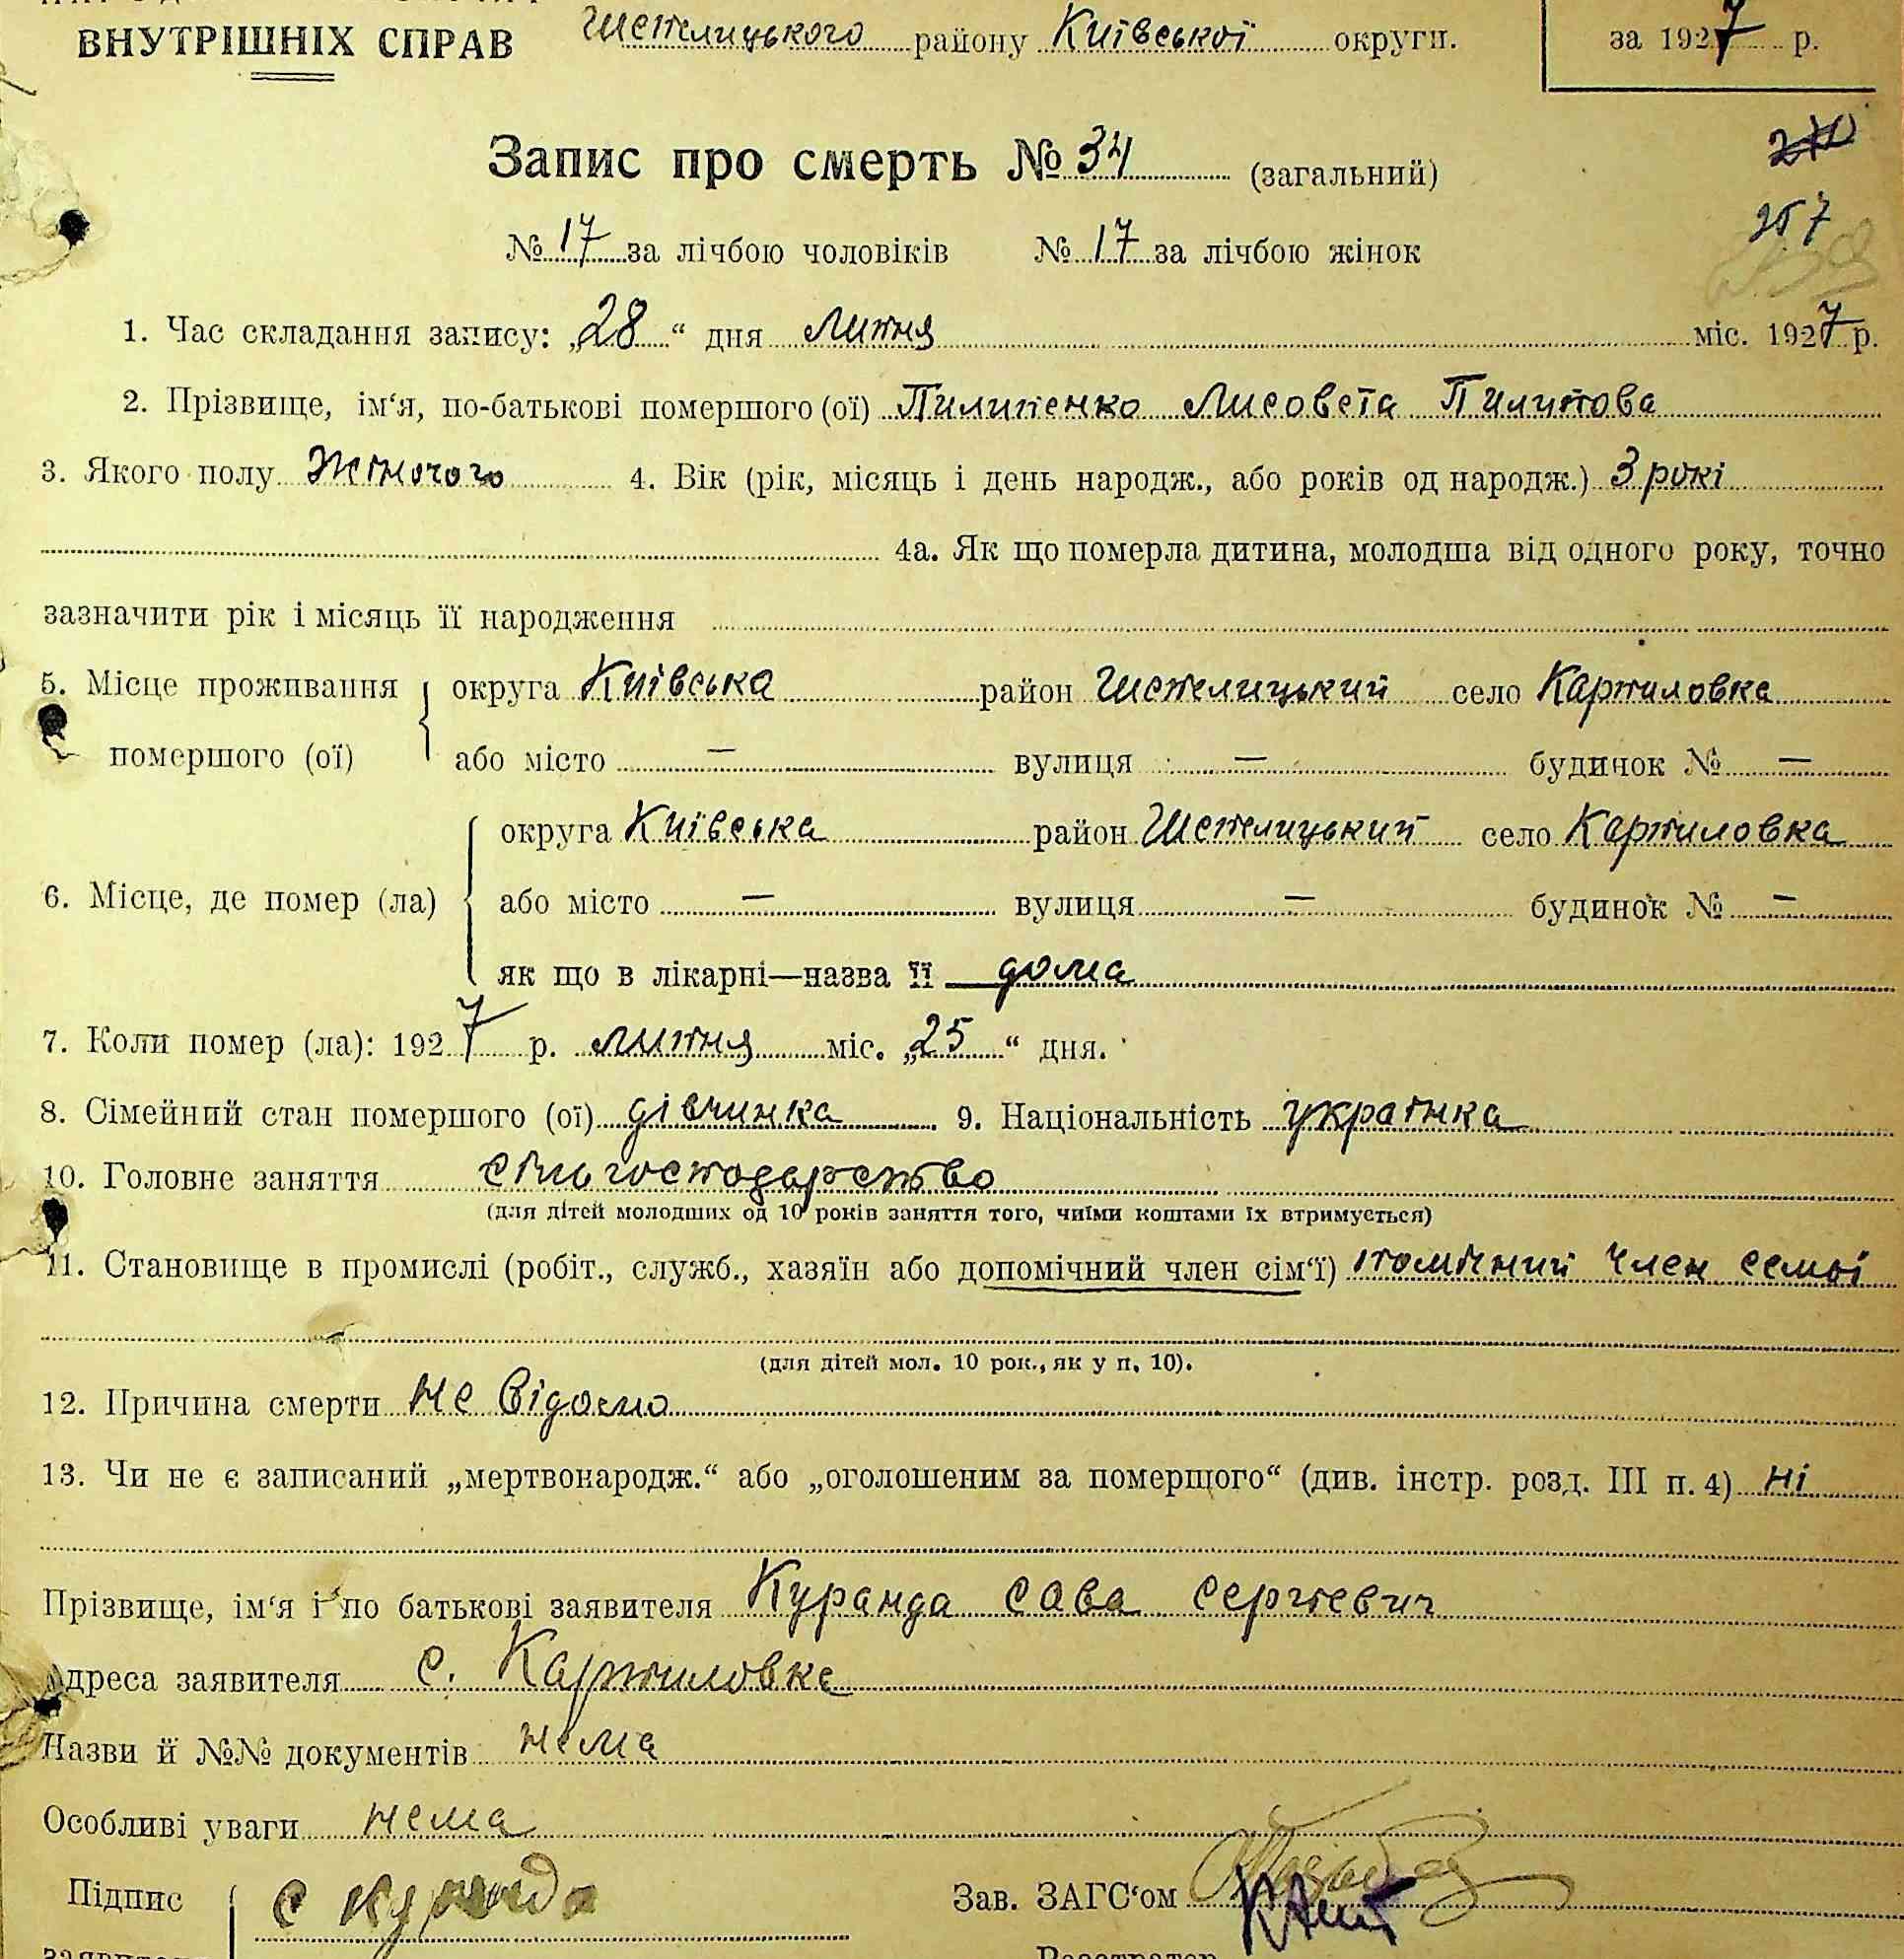 ВНУТРІШНІХ СПРАВ Шепелицького району Київської округи. за 1927 р.
Запис про смерть № 34 (загальний)
257
№ 17 за лічбою чоловіків № 17 за лічбою жінок
1. Час складання запису: „28“ дня Липня міс. 1927 р.
2. Прізвище, ім‘я, по-батькові помершого (ої) Пилипенко Лисовета Пилипова
3. Якого полу Жіночого 4. Вік (рік, місяць і день народж., або років од народж.) 3 рокі
4а. Як що померла дитина, молодша від одного року, точно
зазначити рік і місяць її народження
5. Місце проживання округа Київська район Шепелицький село Карпиловка
помершого (ої) або місто — вулиця — будинок № —
округа Київська район Шепелицький село Карпиловка
6. Місце, де помер (ла) або місто — вулиця — будинок № —
як що в лікарні—назва її дома
7. Коли помер (ла): 1927 р. липня міс. „25“ дня.
8. Сімейний стан помершого (ої) дівчинка 9. Національність українка
10. Головне заняття сільгосподарство
(для дітей молодших од 10 років заняття того, чиїми коштами їх втримується)
11. Становище в промислі (робіт., служб., хазяїн або допомічний член сім‘ї) помічний член семьї
(для дітей мол. 10 рок., як у п. 10).
12. Причина смерти не відомо
13. Чи не є записаний „мертвонародж.“ або „оголошеним за померщого“ (див. інстр. розд. III п. 4) ні
Прізвище, ім‘я і по батькові заявителя Куранда Сава Сергієвич
Адреса заявителя с. Карпиловка
Назви й №№ документів нема
Особливі уваги нема
Підпис С Куранда Зав. ЗАГС‘ом